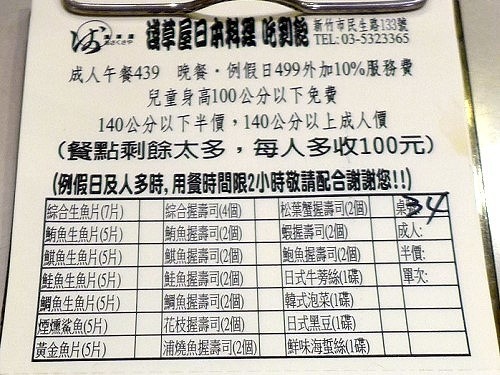 淺草屋日本料理 吃到飽 新竹市民生路133號
TEL: 03-5323365
成人午餐439 晚餐·例假日499外加10%服務費
兒童身高100公分以下免費
140公分以下半價，140公分以上成人價
(餐點剩餘太多，每人多收100元)
(例假日及人多時,用餐時間限2小時敬請配合謝謝您!!)
綜合生魚片(7片) 綜合握壽司(4個) 松葉蟹握壽司(2個) 桌 34
鮪魚生魚片(5片) 鮪魚握壽司(2個) 蝦握壽司(2個) 成人:
鮭魚生魚片(5片) 旗魚握壽司(2個) 鮑魚握壽司(2個) 半價:
鮭魚生魚片(5片) 鮭魚握壽司(2個) 日式牛蒡絲(1碟) 單次:
鯛魚生魚片(5片) 鯛魚握壽司(2個) 韓式泡菜(1碟)
煙燻鯊魚(5片) 花枝握壽司(2個) 日式黑豆(1碟)
黃金魚片(5片) 浦燒魚握壽司(2個) 鮮味海蜇絲(1碟)